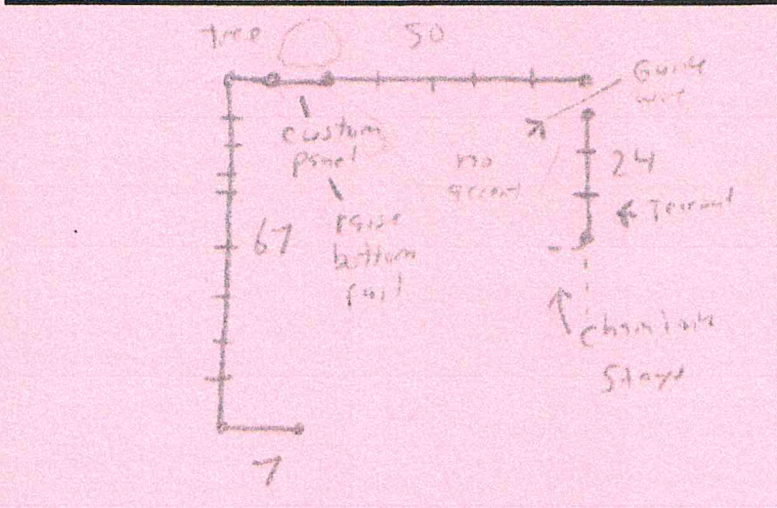 Tree
50
Guide
wire
custom
panel
no
access
24
67
raise
bottom
rail
Chainlink
Stays
7